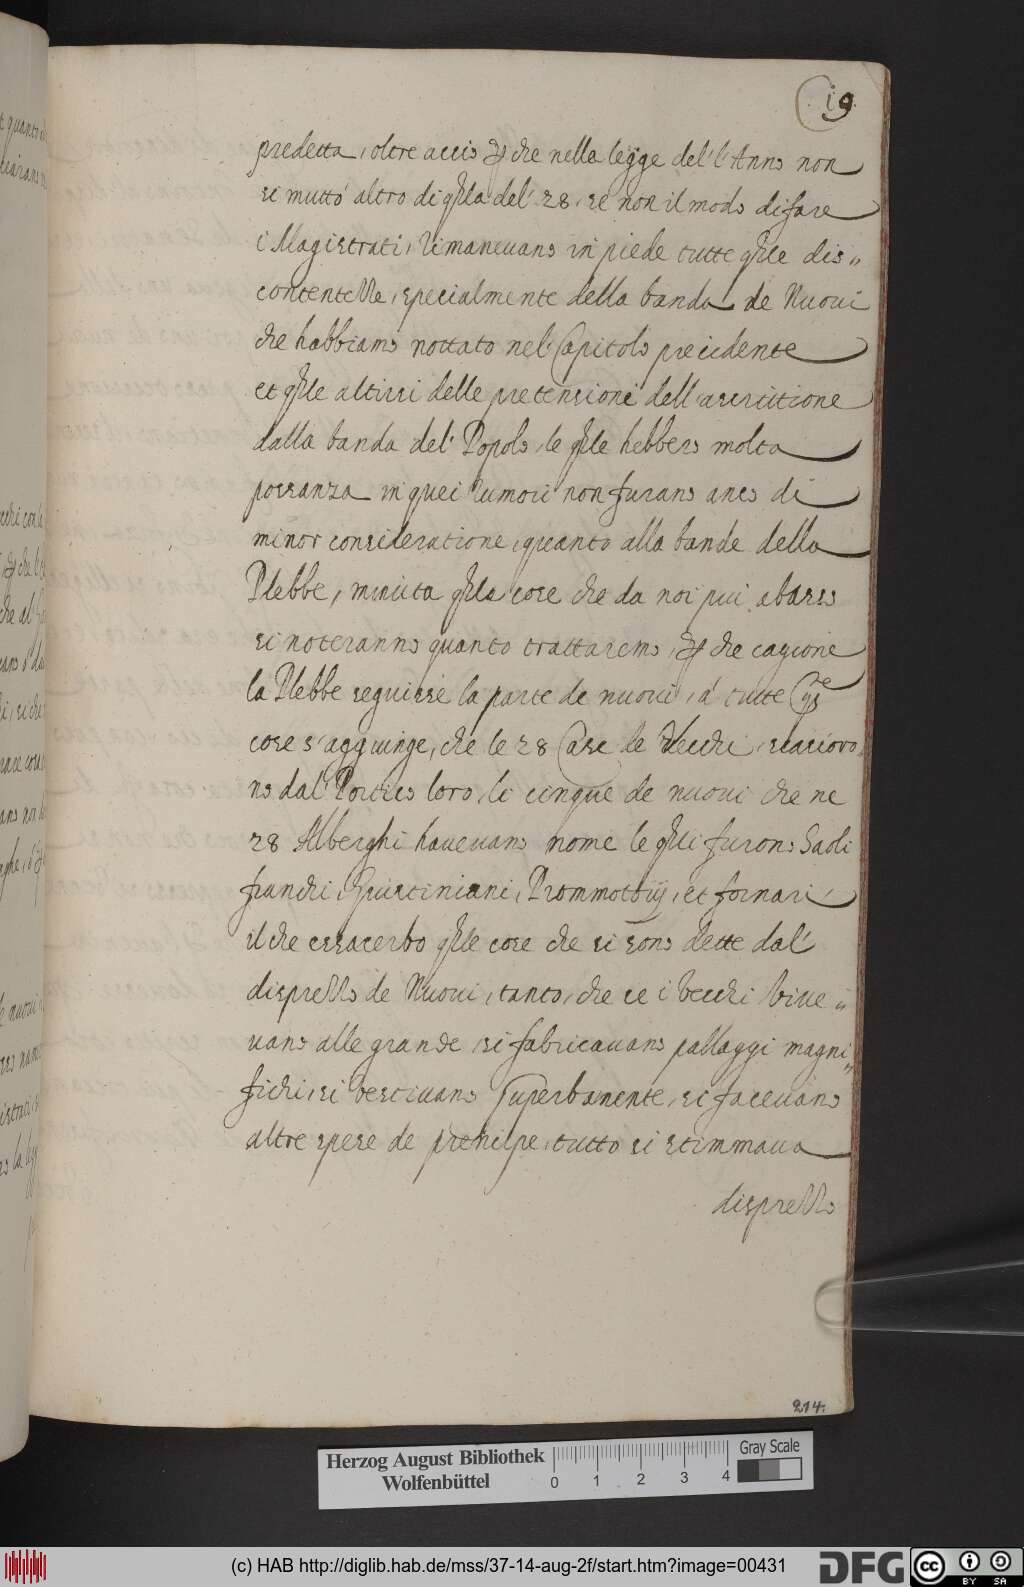 19.
predetta, oltre accio che nella legge del' l'Anno non
si muttò altro di qlla del' 28, se non il modo di fare
i Magistrati, Rimanevano in piede tutte qlle dis„
contentezze, specialmente della banda de Nuovi
che habbiamo nottato nel' Capitolo precidente
et qlle altissi delle pretensioni dell'
dalla banda del' Popolo, le qlle hebbero molta
possanza in quei Rumori non furano anco di
minor consideratione, quanto alla banda della
Plebbe, minuta qlla cose che da noi piu abasso
si noteranno quanto trattaremo, che cagione
la Plebbe seguisse la parte de nuovi, à tutte
cose s'aggiunge, che le 28 Case de Vecchi,
no dal' Portico loro, li cinque de nuovi che ne
28 Alberghi havevano nome le qlli furono Saoli
franchi, Giustiniani, Prommottorij, et fornari
il che essacerbo qlle cose che si sono dette dal'
disprezzo de Nuovi, tanto, che se i Vecchi Vive„
vano alle grande, si fabricavano pallaggi magni„
fichi, si vestivano superbamente, si facevano
altre spese de prencipe, tutto si stimmava
disprezzo
214.
Herzog August Bibliothek
Wolfenbüttel
0 1 2 3 4
Gray Scale
(c) HAB http://diglib.hab.de/mss/37-14-aug-2f/start.htm?image=00431
DFG
cc BY SA